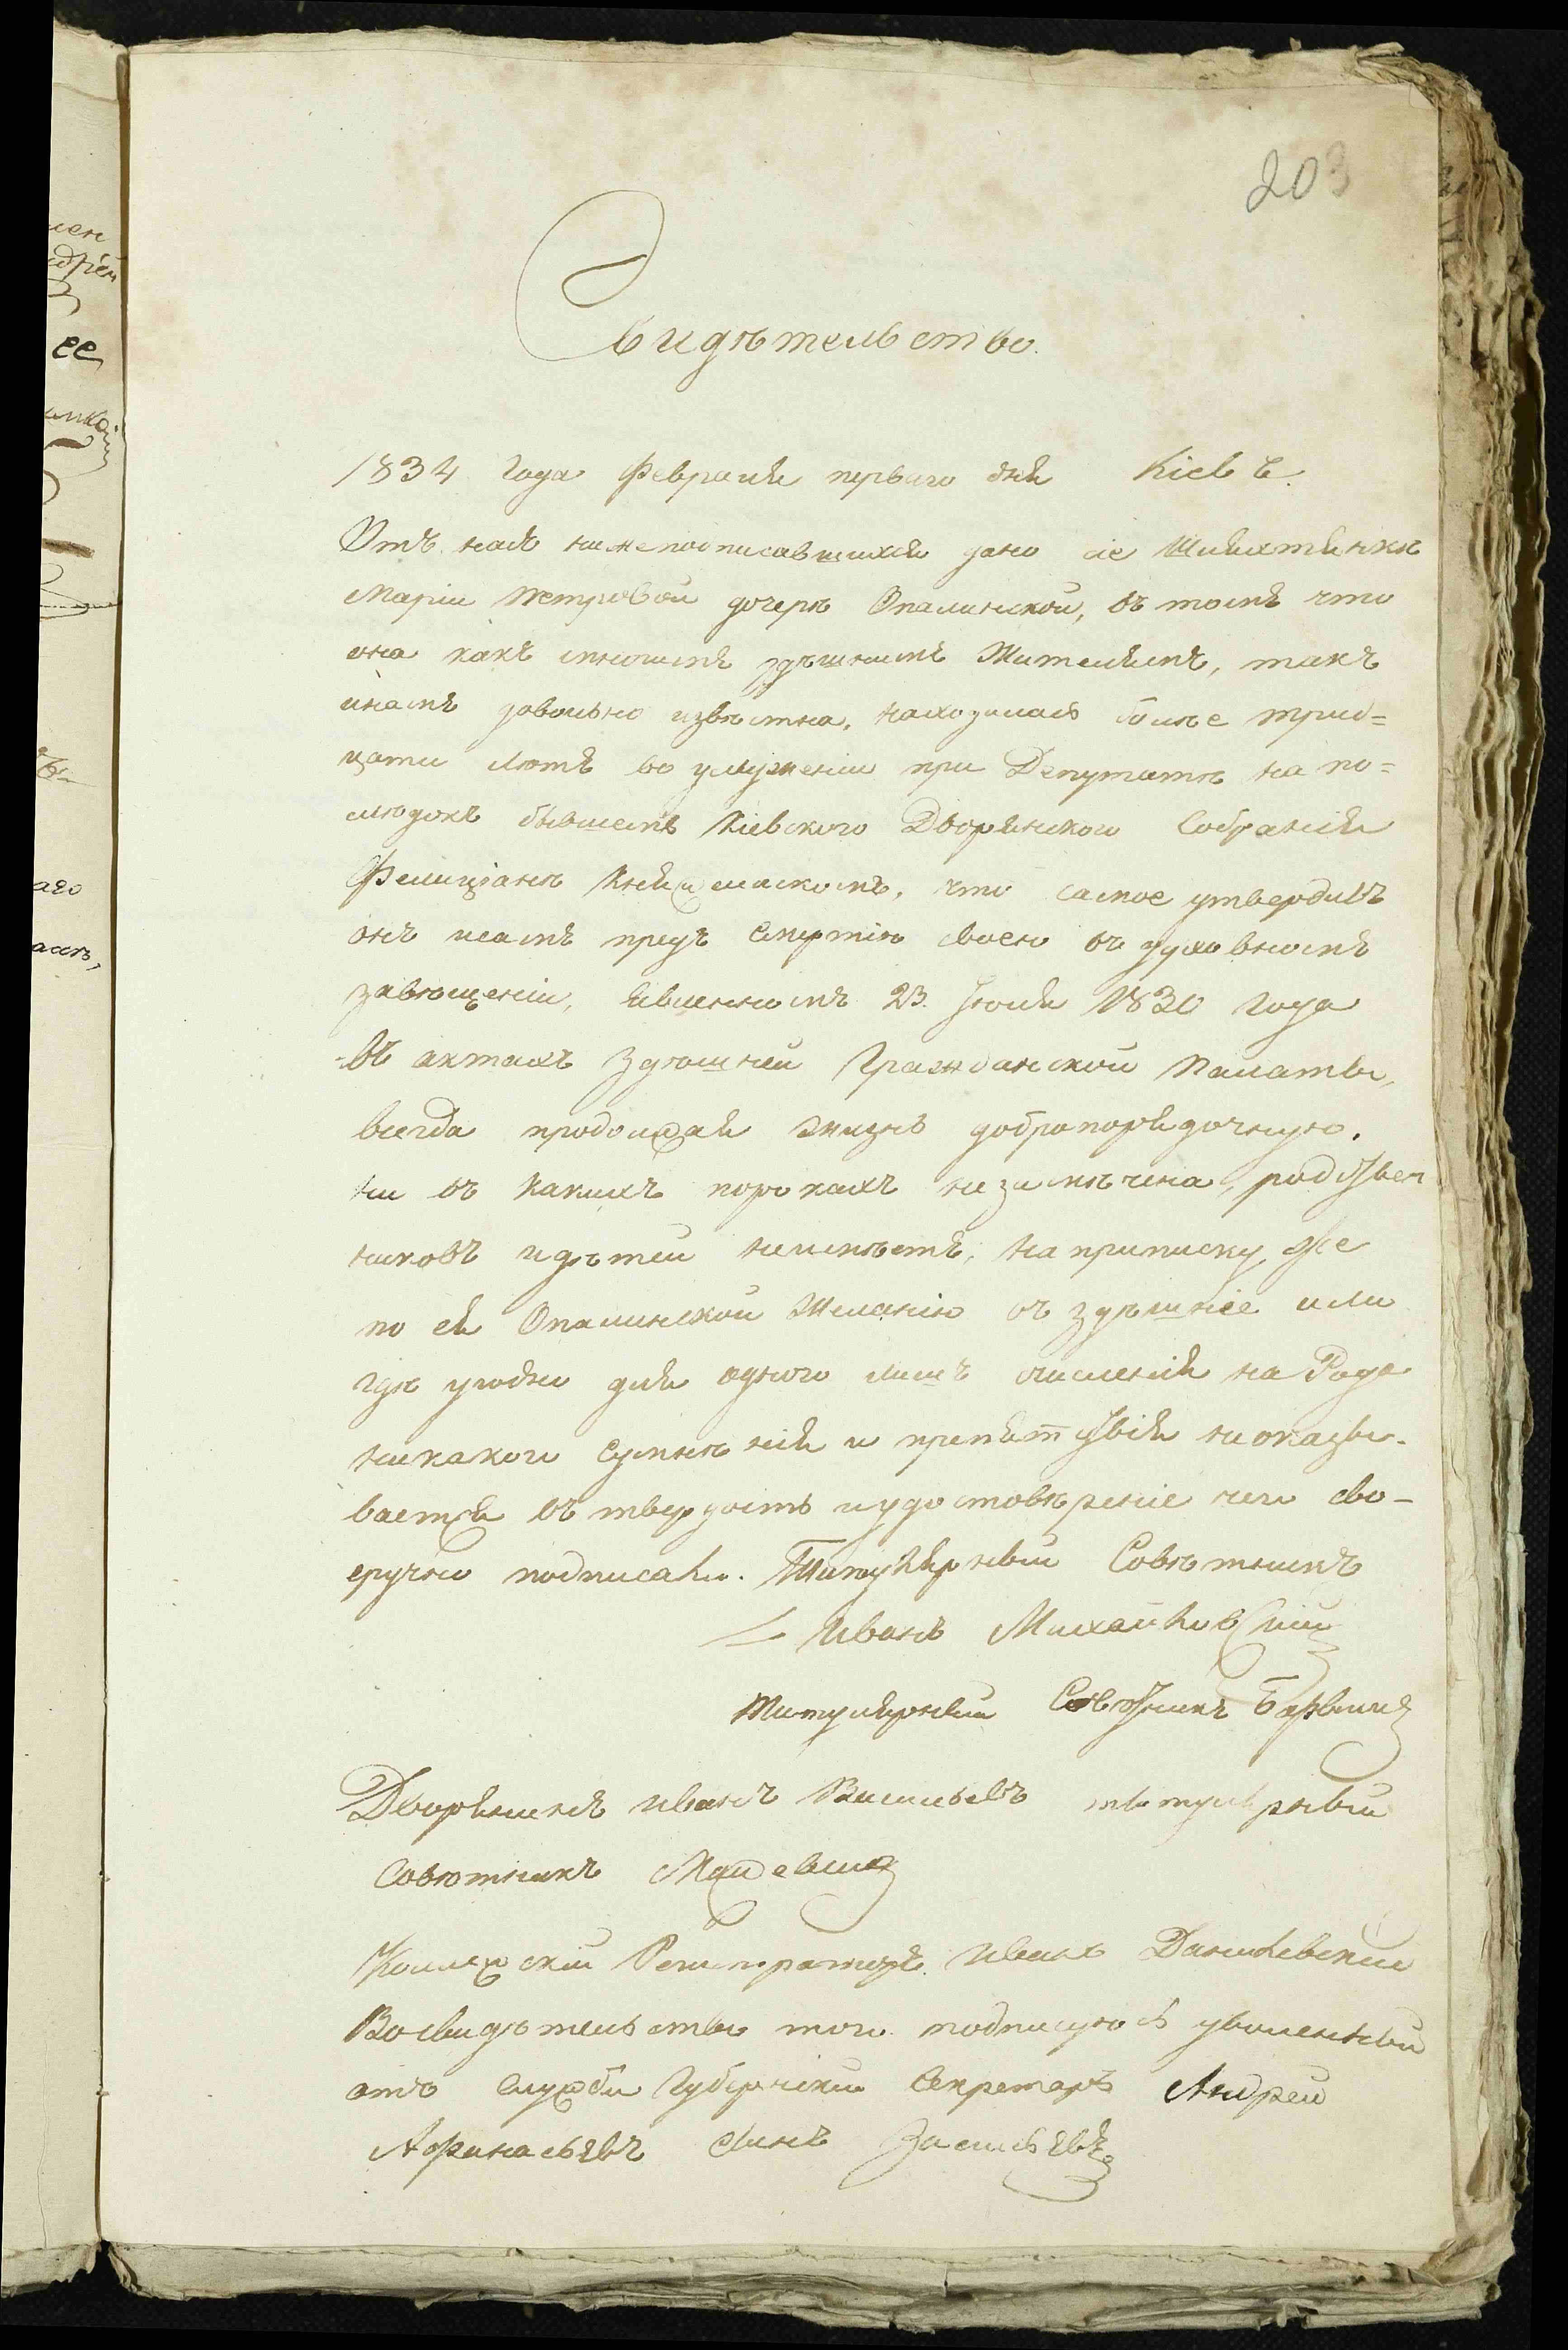 203
Свидѣтельство.
1834 года Февраля перваго дня Кіевъ.
Отъ насъ нижеподписавшихся дано сіе Шляхтянкѣ
Маріи Петровой дочерѣ Опалинской, въ томъ что
она какъ многимъ здѣшнимъ Жителямъ, такъ
инамъ довольно извѣстна, находилась болѣе трид=
цати лѣтъ во услуженіи при Депутатѣ на по=
слѣдокъ бывшемъ Кіевского Дворянского Собранія
Фелиціанѣ, что самое утвердилъ
онъ исамъ предъ смертію своею въ духовномъ
завѣщеніи, явленномъ 23. Іюля 1830 года
въ актахъ здѣшней Гражданской Палаты,
всегда продолжая жизнь добропорядочную,
ни въ какихъ порокахъ незамѣчена, родствен
никовъ идѣтей неимѣетъ, на приписку же
по ея Опалинской желанію въ здѣшніе или
гдѣ угодно для одного лишъ счисленія на Родѣ
никакого сумнѣнія и препятствія неоказы-
вается въ твердость иудостовѣреніе чего сво-
еручно подписали. Титулярный Совѣтникъ
Иванъ Михайловскій
Титулярный Совѣтникъ
Дворянинъ Иванъ Васильевъ титулярный
Совѣтникъ
Коллежскій Регистраторъ Иванъ Данилевскій
Восвидѣтельство того подписуюсь уволенный
отъ службы Губернскій Секретарь Андрей
Афанасьевъ сынъ
ее
аго